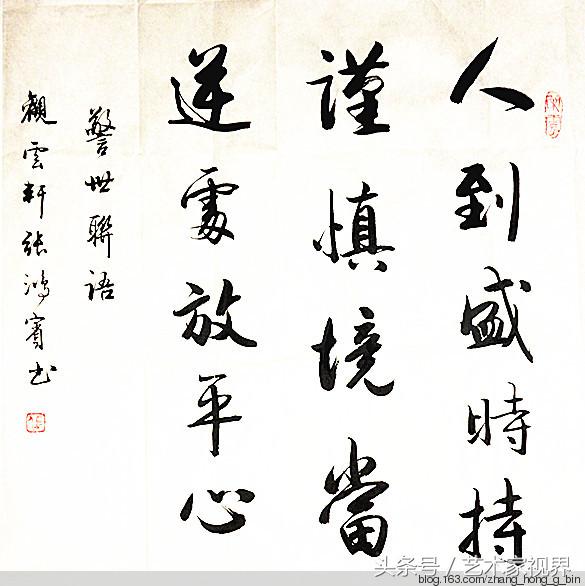 人到盛時持
謹慎境當
逆處放平心
警世聯語
觀雲軒張鴻賓书
头条号/艺术家视界
blog.163.com/zhang_hong_g_bin